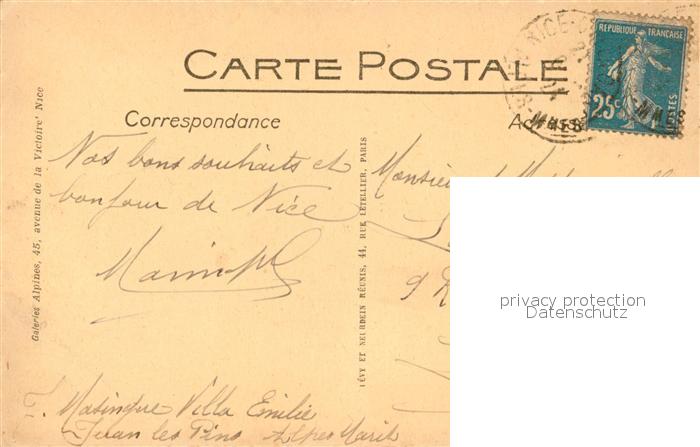 CARTE POSTALE
REPUBLIQUE FRANÇAISE
25c POSTES
NICE
Correspondance
Adresse
Nos bons souhaits et
bonjour de Nice
Monsieur
9
Villa Emilie
Juan les Pins Alpes Marit
Galeries Alpines, 45, avenue de la Victoire, Nice
LÉVY ET NEURDEIN RÉUNIS, 44, RUE LETELLIER, PARIS
privacy protection
Datenschutz